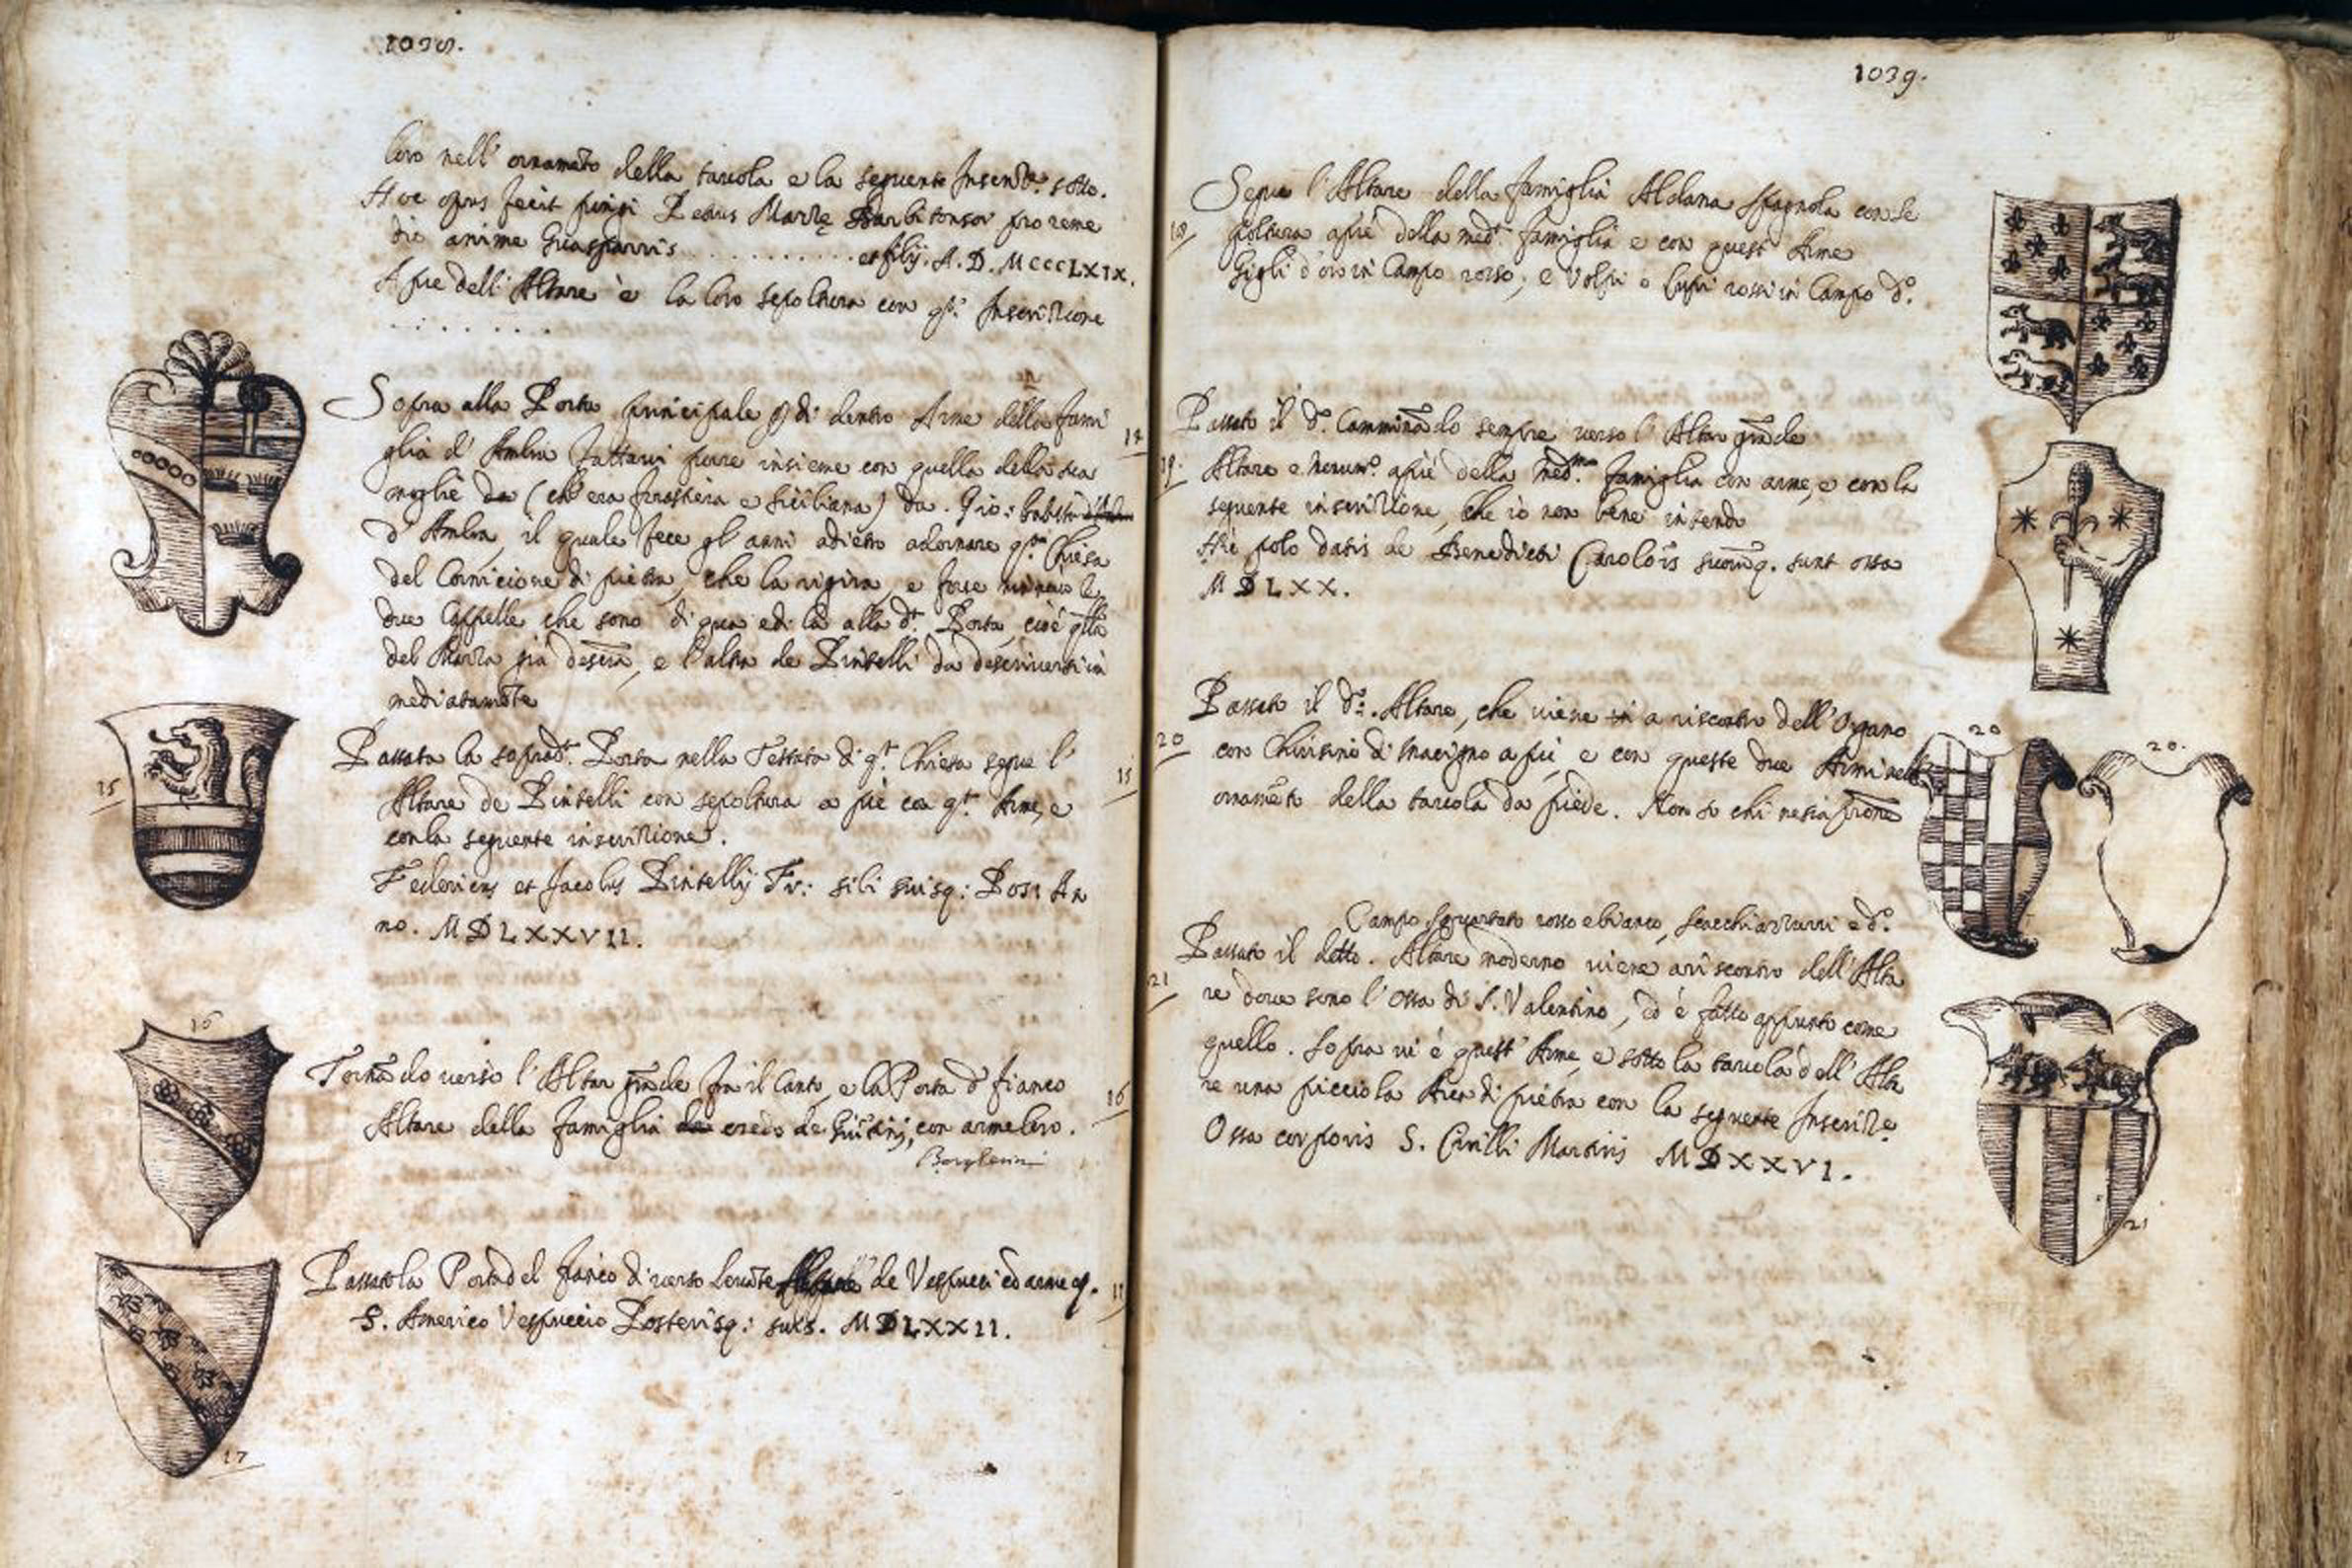 1038.
loro nell' ornamēto della tavola e la seguente Inscritt.e sotto.
Hoc opus fecit pingi Marie Barbitonsor pro reme
dio anime Guasparris . . . . . . . . . . et filij. A. D. MCCCLXIX.
A pie dell' Altare è la loro sepoltura con qs.a Inscrizione
. . . . . . .
Sopra alla Porta principale di dentro Arme della fami
14
glia d' Ambra fattavi porre insieme con quella della sua
moglie da (ch' era forastiera e Siciliana) da. Gio: batista
d' Ambra, il quale fece gl' anni adietro adornare qsta Chiesa
del Cornicione di pietra, che la rigira, e forse
due Cappelle che sono di qua e di là alla d.a Porta, cioè qlla
del Mazza già descrā, e l'altra de Pintelli da descriversi im
mediatamēte
Passata la soprad.a Porta nella Testata di q.a Chiesa segue l'
15
15
Altare de Pintelli con sepoltura a piè con q.a Arme, e
con la seguente inscrizione.
Federicus et Jacobus Pintellij Fr: sibi suisq: Pos: An
no. MDLXXVII.
16
Tornādo verso l'Altar grāde fra il Canto, e la Porta d' fianco
Altare della famiglia credo de con arme loro.
16
Borgherini
Passato la Porta del fianco di verso Levāte de Vespucci cō arme q.
17
S. Americo Vespuccio Posterisq: suis. MDLXXII.
17
1039.
Segue l'Altare della famiglia Aldana Spagnola con se
18
poltura a piè della med.a famiglia e con quest' Arme
Gigli d'oro in Campo rosso; e Volpi o Lupi rossi in Campo d'o.
Passato il d.o Camminādo sempre verso l'Altar grāde
19.
Altare e monum.o a piè della med.ma famiglia con arme, e con la
seguente inscrizione, che io non bene intendo
Hic polo datis de Benedicti Carolois suorūq. sunt ossa
MDLXX.
Passato il d.o Altare, che viene a riscontro dell'Organo
20
20
20.
con Chiusino di macigno a piè, e con queste due Armi nell'
ornamēto della tavola da piede. Non so chi ne sia prone
Campo squartato rosso e bianco, scacchi azzurri e d'o.
Passato il detto. Altare moderno viene a riscontro dell'Alta
21
re dove sono l'Ossa di S. Valentino, ed è fatto appunto come
quello. Sopra vi è quest' Arme, e sotto la tavola dell' Alta
re una piccola Arca di pietra con la seguente Inscrize
Ossa corporis S. Cirilli Martiris MDXXVI.
21